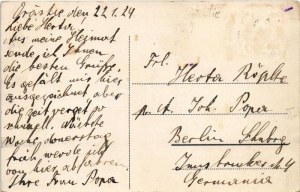 Orăştie den 22.1.24
Liebe Herta
Aus meine Heimat
sende ich Ihnen
die besten Grüße.
Es gefält mir hier
ausgezeichnet aber
die Zeit verget so
schnell. Nächste
Woche donnerstag
früh, werde ich
von hier abfahren.
Ihre Frau Popa
Frl.
Herta
p. A. Joh. Popa
Berlin Schnbrg
Innsbrucker
Germania